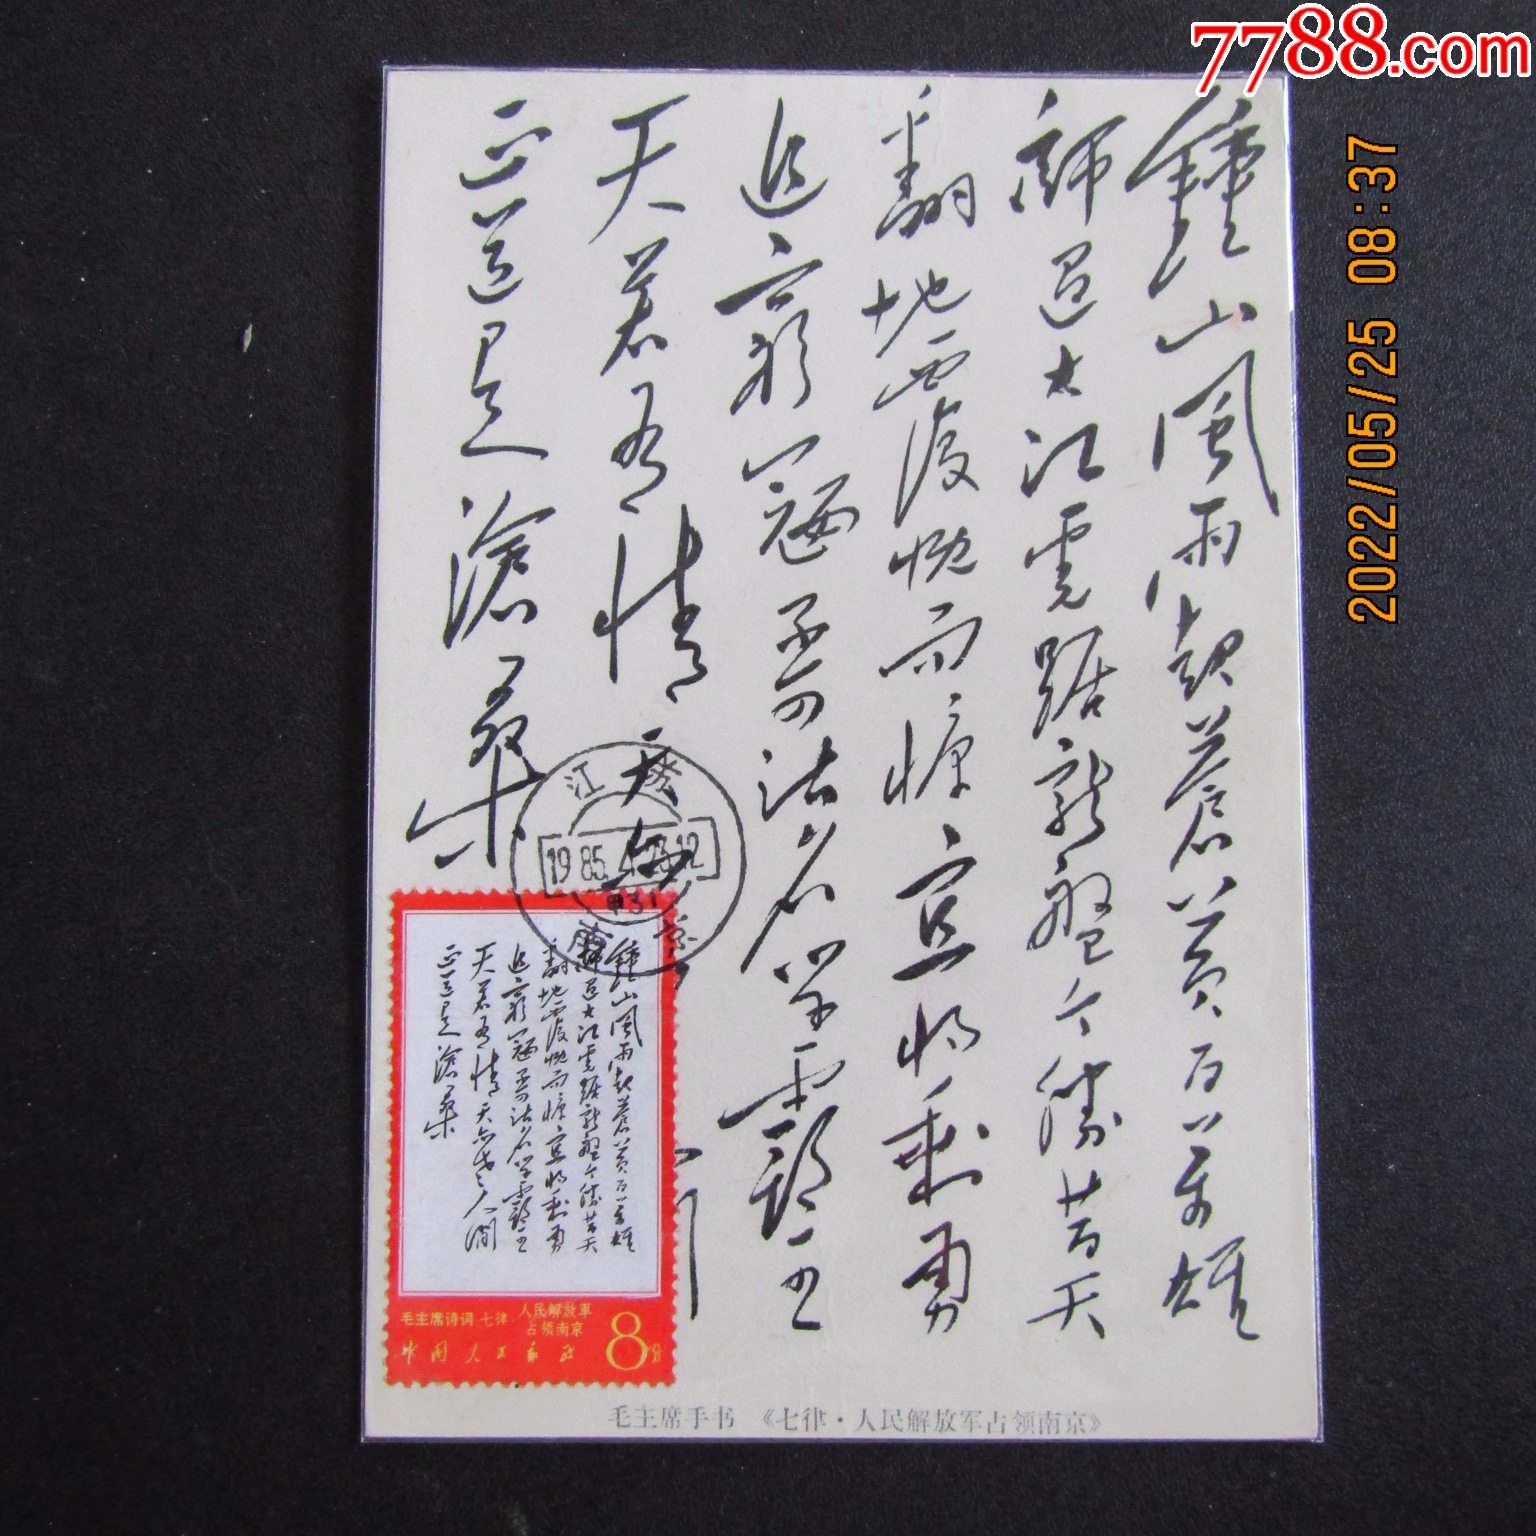 7788.com
2022/05/25 08:37
鍾山風雨起蒼黃百萬雄
師過大江虎踞龍盤今勝昔天
翻地覆慨而慷宜將剩勇
追窮寇不可沽名學霸王
天若有情天亦
正道是滄桑
江苏
1985.4.23.12
南京
鍾山風雨起蒼黃百萬雄
師過大江虎踞龍盤今勝昔天
翻地覆慨而慷宜將剩勇
追窮寇不可沽名學霸王
天若有情天亦老人間
正道是滄桑
毛主席诗词 七律·人民解放軍
占领南京
中国人民邮政 8分
毛主席手书 《七律·人民解放军占领南京》